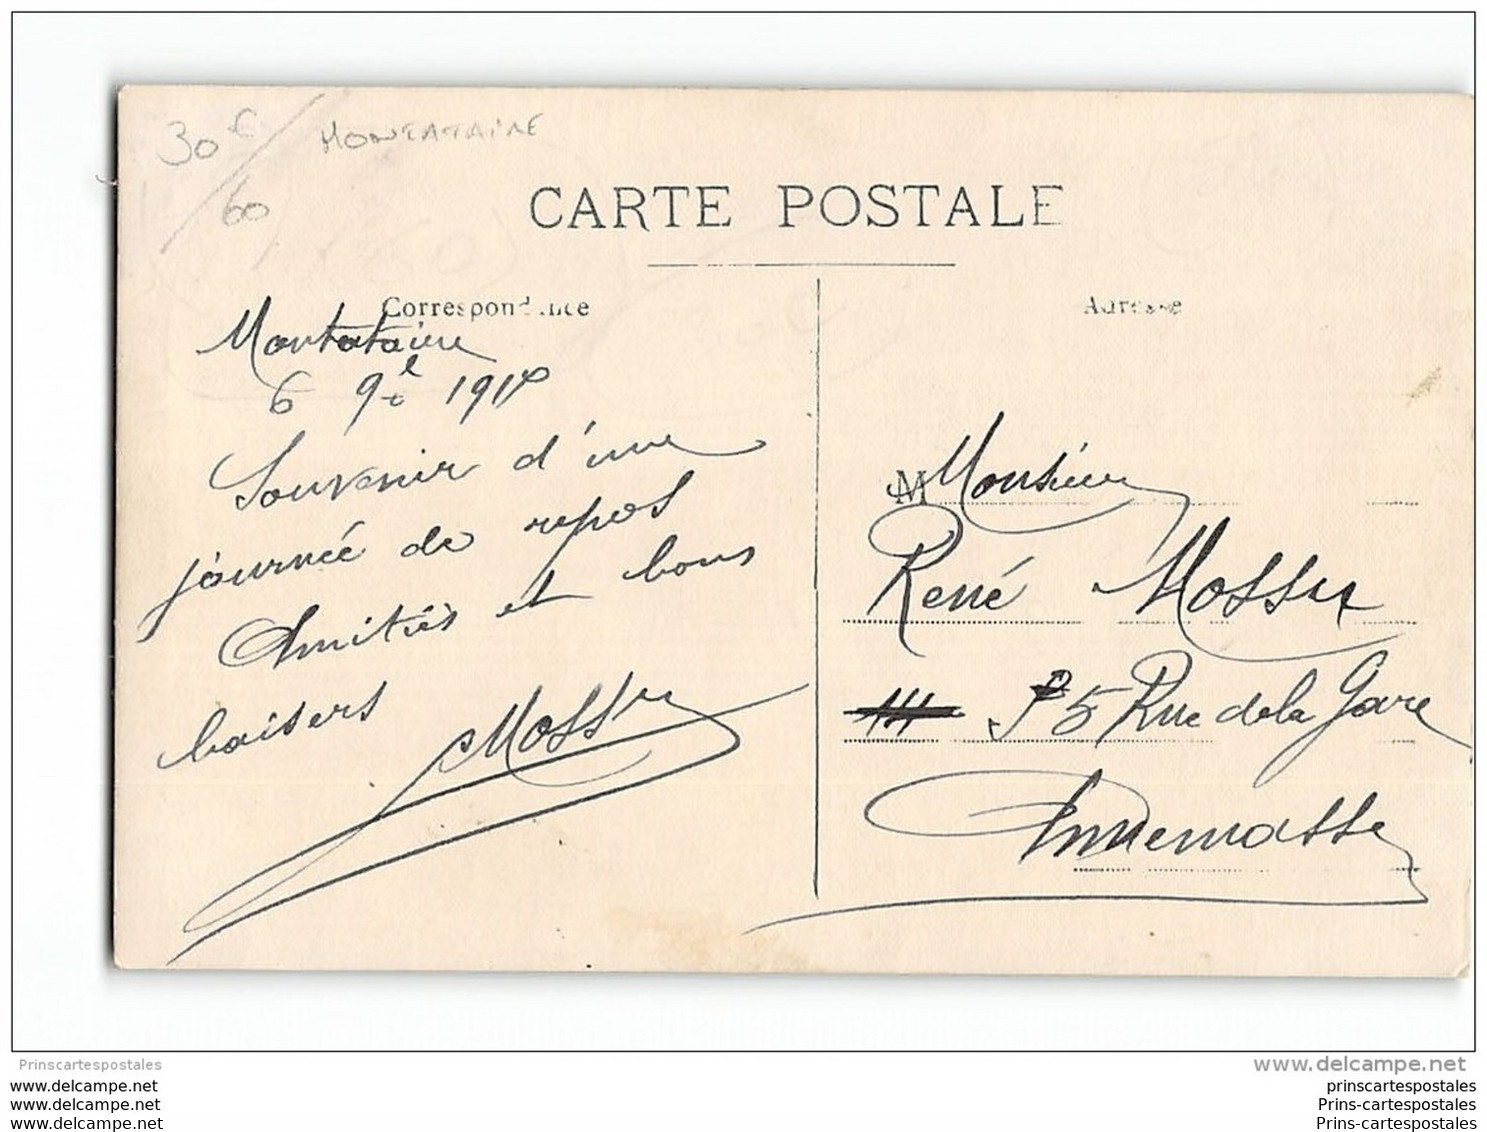 30€
60
MONTATAIRE
CARTE POSTALE
Correspondance
Adresse
Montataire
6 9bre
Souvenir d'une
journée de repos
Amitiés et bons
baisers
M Monsieur
René
Rue de la Gare
Annemasse
Prinscartespostales
www.delcampe.net
www.delcampe.net
www.delcampe.net
www.delcampe.net
prinscartespostales
Prins-cartespostales
Prins-cartespostales